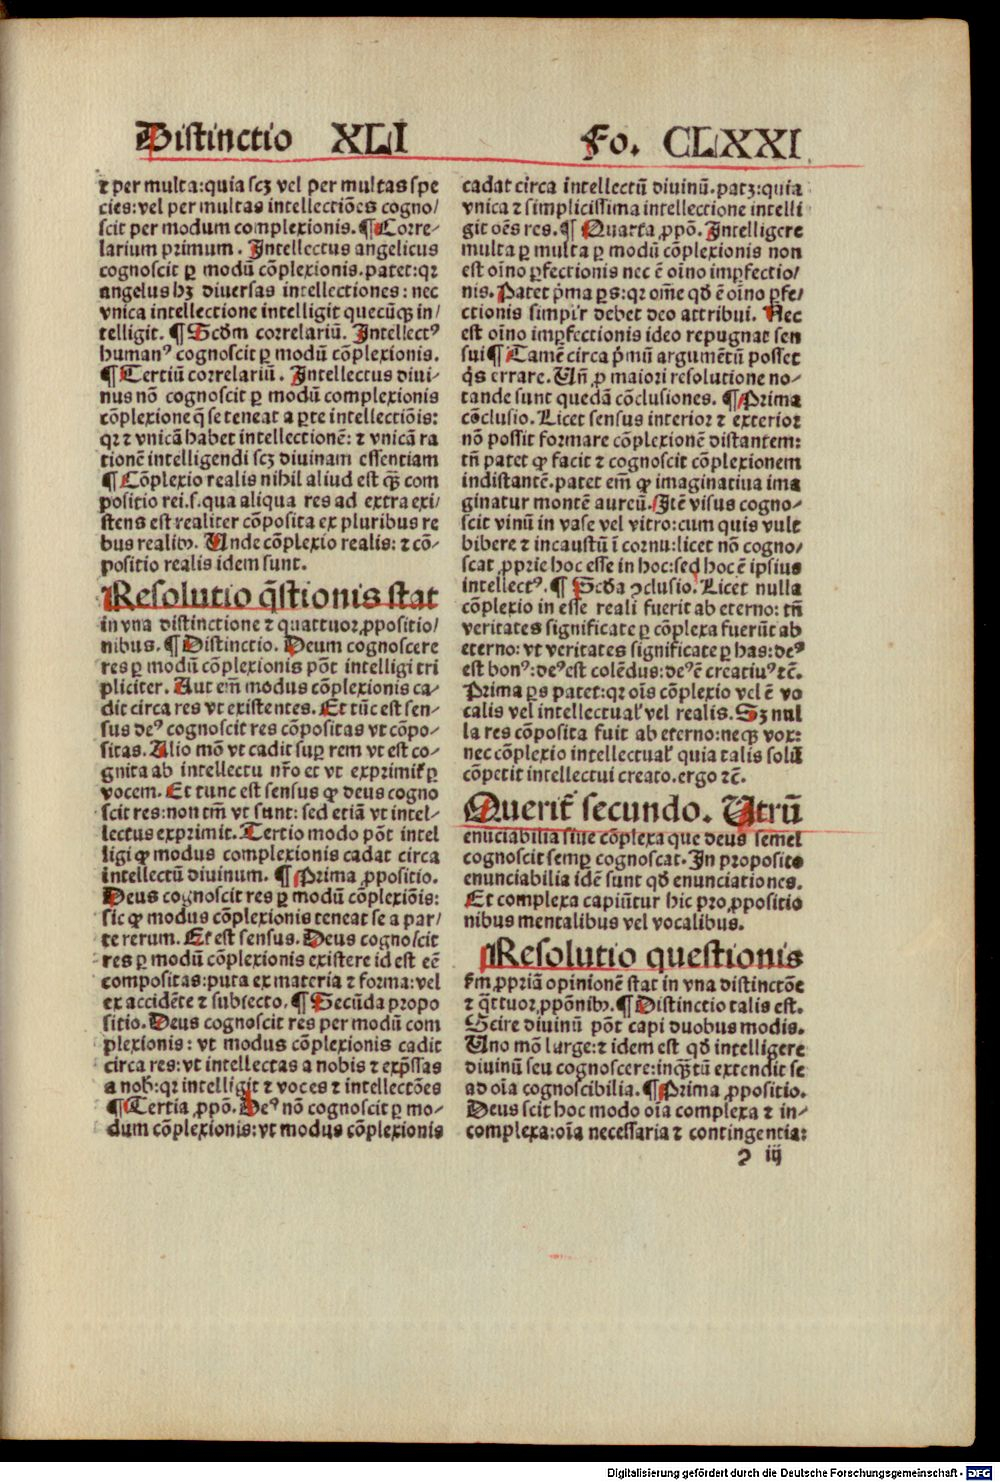 Distinctio XLI Fo. CLXXI
⁊ per multa: quia scꝫ vel per multas spe
cies: vel per multas intellectiões cogno/
scit per modum complexionis. ¶ Corre-
larium primum. Intellectus angelicus
cognoscit ꝑ modũ cõplexionis. patet: qꝛ
angelus hꝫ diuersas intellectiones: nec
vnica intellectione intelligit quecũqꝫ in/
telligit. ¶ Scḋm correlariũ. Intellectꝰ
humanꝰ cognoscit ꝑ modũ cõplexionis.
¶ Tertiũ correlariũ. Intellectus diui-
nus nõ cognoscit ꝑ modũ complexionis
cõplexione q̃ se teneat a ꝑte intellectiõis:
qꝛ ⁊ vnicã habet intellectionẽ: ⁊ vnicã ra
tionẽ intelligendi scꝫ diuinam essentiam
¶ Cõplexio realis nihil aliud est qꝫ com
positio rei. s. qua aliqua res ad extra exi/
stens est realiter cõposita ex pluribus re
bus realibꝰ. Unde cõplexio realis: ⁊ cõ-
positio realis idem sunt.
¶ Resolutio q̃stionis stat
in vna distinctione ⁊ quattuor ꝓpositio/
nibus. ¶ Distinctio. Deum cognoscere
res ꝑ modũ cõplexionis põt intelligi tri
pliciter. Aut em̃ modus cõplexionis ca-
dit circa res vt existentes. Et tũc est sen-
sus deꝰ cognoscit res cõpositas vt cõpo-
sitas. Alio mõ vt cadit suꝑ rem vt est co-
gnita ab intellectu nr̃o et vt exprimit̃ ꝑ
vocem. Et tunc est sensus ꝙ deus cogno
scit res: non tm̃ vt sunt: sed etiã vt intel-
lectus exprimit. Tertio modo põt intel
ligi ꝙ modus complexionis cadat circa
intellectũ diuinum. ¶ Prima ꝓpositio.
Deus cognoscit res ꝑ modũ cõplexiõis:
sic ꝙ modus cõplexionis teneat se a par/
te rerum. Et est sensus. Deus cognoscit
res ꝑ modũ cõplexionis existere id est eẽ
compositas: puta ex materia ⁊ forma: vel
ex accidẽte ⁊ subiecto. ¶ Secũda propo
sitio. Deus cognoscit res per modũ com
plexionis: vt modus cõplexionis cadit
circa res: vt intellectas a nobis ⁊ exp̃ssas
a nob̃: qꝛ intelligit ⁊ voces ⁊ intellectões
¶ Tertia ꝓpõ. Deꝰ nõ cognoscit ꝑ mo-
dum cõplexionis: vt modus cõplexionis
cadat circa intellectũ diuinũ. patꝫ: quia
vnica ⁊ simplicissima intellectione intelli
git oẽs res. ¶ Quarta ꝓpõ. Intelligere
multa ꝑ multa ꝑ modũ cõplexionis non
est oĩno ꝑfectionis nec ẽ oĩno imꝑfectio/
nis. Patet p̃ma ꝑs: qꝛ om̃e qḋ ẽ oĩno ꝑfe/
ctionis simplr̃ debet deo attribui. Nec
est oĩno imꝑfectionis ideo repugnat sen
sui ¶ Tamẽ circa p̃mũ argumẽtũ posset
q̃s errare. Uñ ꝓ maiori resolutione no-
tande sunt quedã cõclusiones. ¶ Prima
cõclusio. Licet sensus interior ⁊ exterior
nõ possit formare cõplexionẽ distantem:
tñ patet ꝙ facit ⁊ cognoscit cõplexionem
indistantẽ. patet em̃ ꝙ imaginatiua ima
ginatur montẽ aureũ. Itẽ visus cogno-
scit vinũ in vase vel vitro: cum quis vult
bibere ⁊ incaustũ ĩ cornu: licet nõ cogno/
scat ꝓprie hoc esse in hoc: sed hoc ẽ ipsius
intellectꝰ. ¶ Scḋa ꝯclusio. Licet nulla
cõplexio in esse reali fuerit ab eterno: tñ
veritates significate ꝑ cõplexa fuerũt ab
eterno: vt veritates significate ꝑ has: deꝰ
est bonꝰ: deꝰ est colẽdus: deꝰ ẽ creatiuꝰ ⁊c̃.
Prima ꝑs patet: qꝛ oĩs cõplexio vel ẽ vo
calis vel intellectual̃ vel realis. Sꝫ nul
la res cõposita fuit ab eterno: neqꝫ vox:
nec cõplexio intellectual̃ quia talis solũ
cõpetit intellectui creato. ergo ⁊c̃.
Querit̃ secundo. Utrũ
enũciabilia siue cõplexa que deus semel
cognoscit semꝑ cognoscat. In proposito
enunciabilia idẽ sunt qḋ enunciationes.
Et complexa capiũtur hic pro ꝓpositio
nibus mentalibus vel vocalibus.
¶ Resolutio questionis
fm̃ ꝓpriã opinionẽ stat in vna distinctõe
⁊ q̃ttuor ꝓpõnibꝰ. ¶ Distinctio talis est.
Scire diuinũ põt capi duobus modis.
Uno mõ large: ⁊ idem est qḋ intelligere
diuinũ seu cognoscere: inqꝫtũ extendit se
ad oĩa cognoscibilia. ¶ Prima ꝓpositio.
Deus scit hoc modo oĩa complexa ⁊ in-
complexa: oĩa necessaria ⁊ contingentia:
ꝯ iij
Digitalisierung gefördert durch die Deutsche Forschungsgemeinschaft - DFG